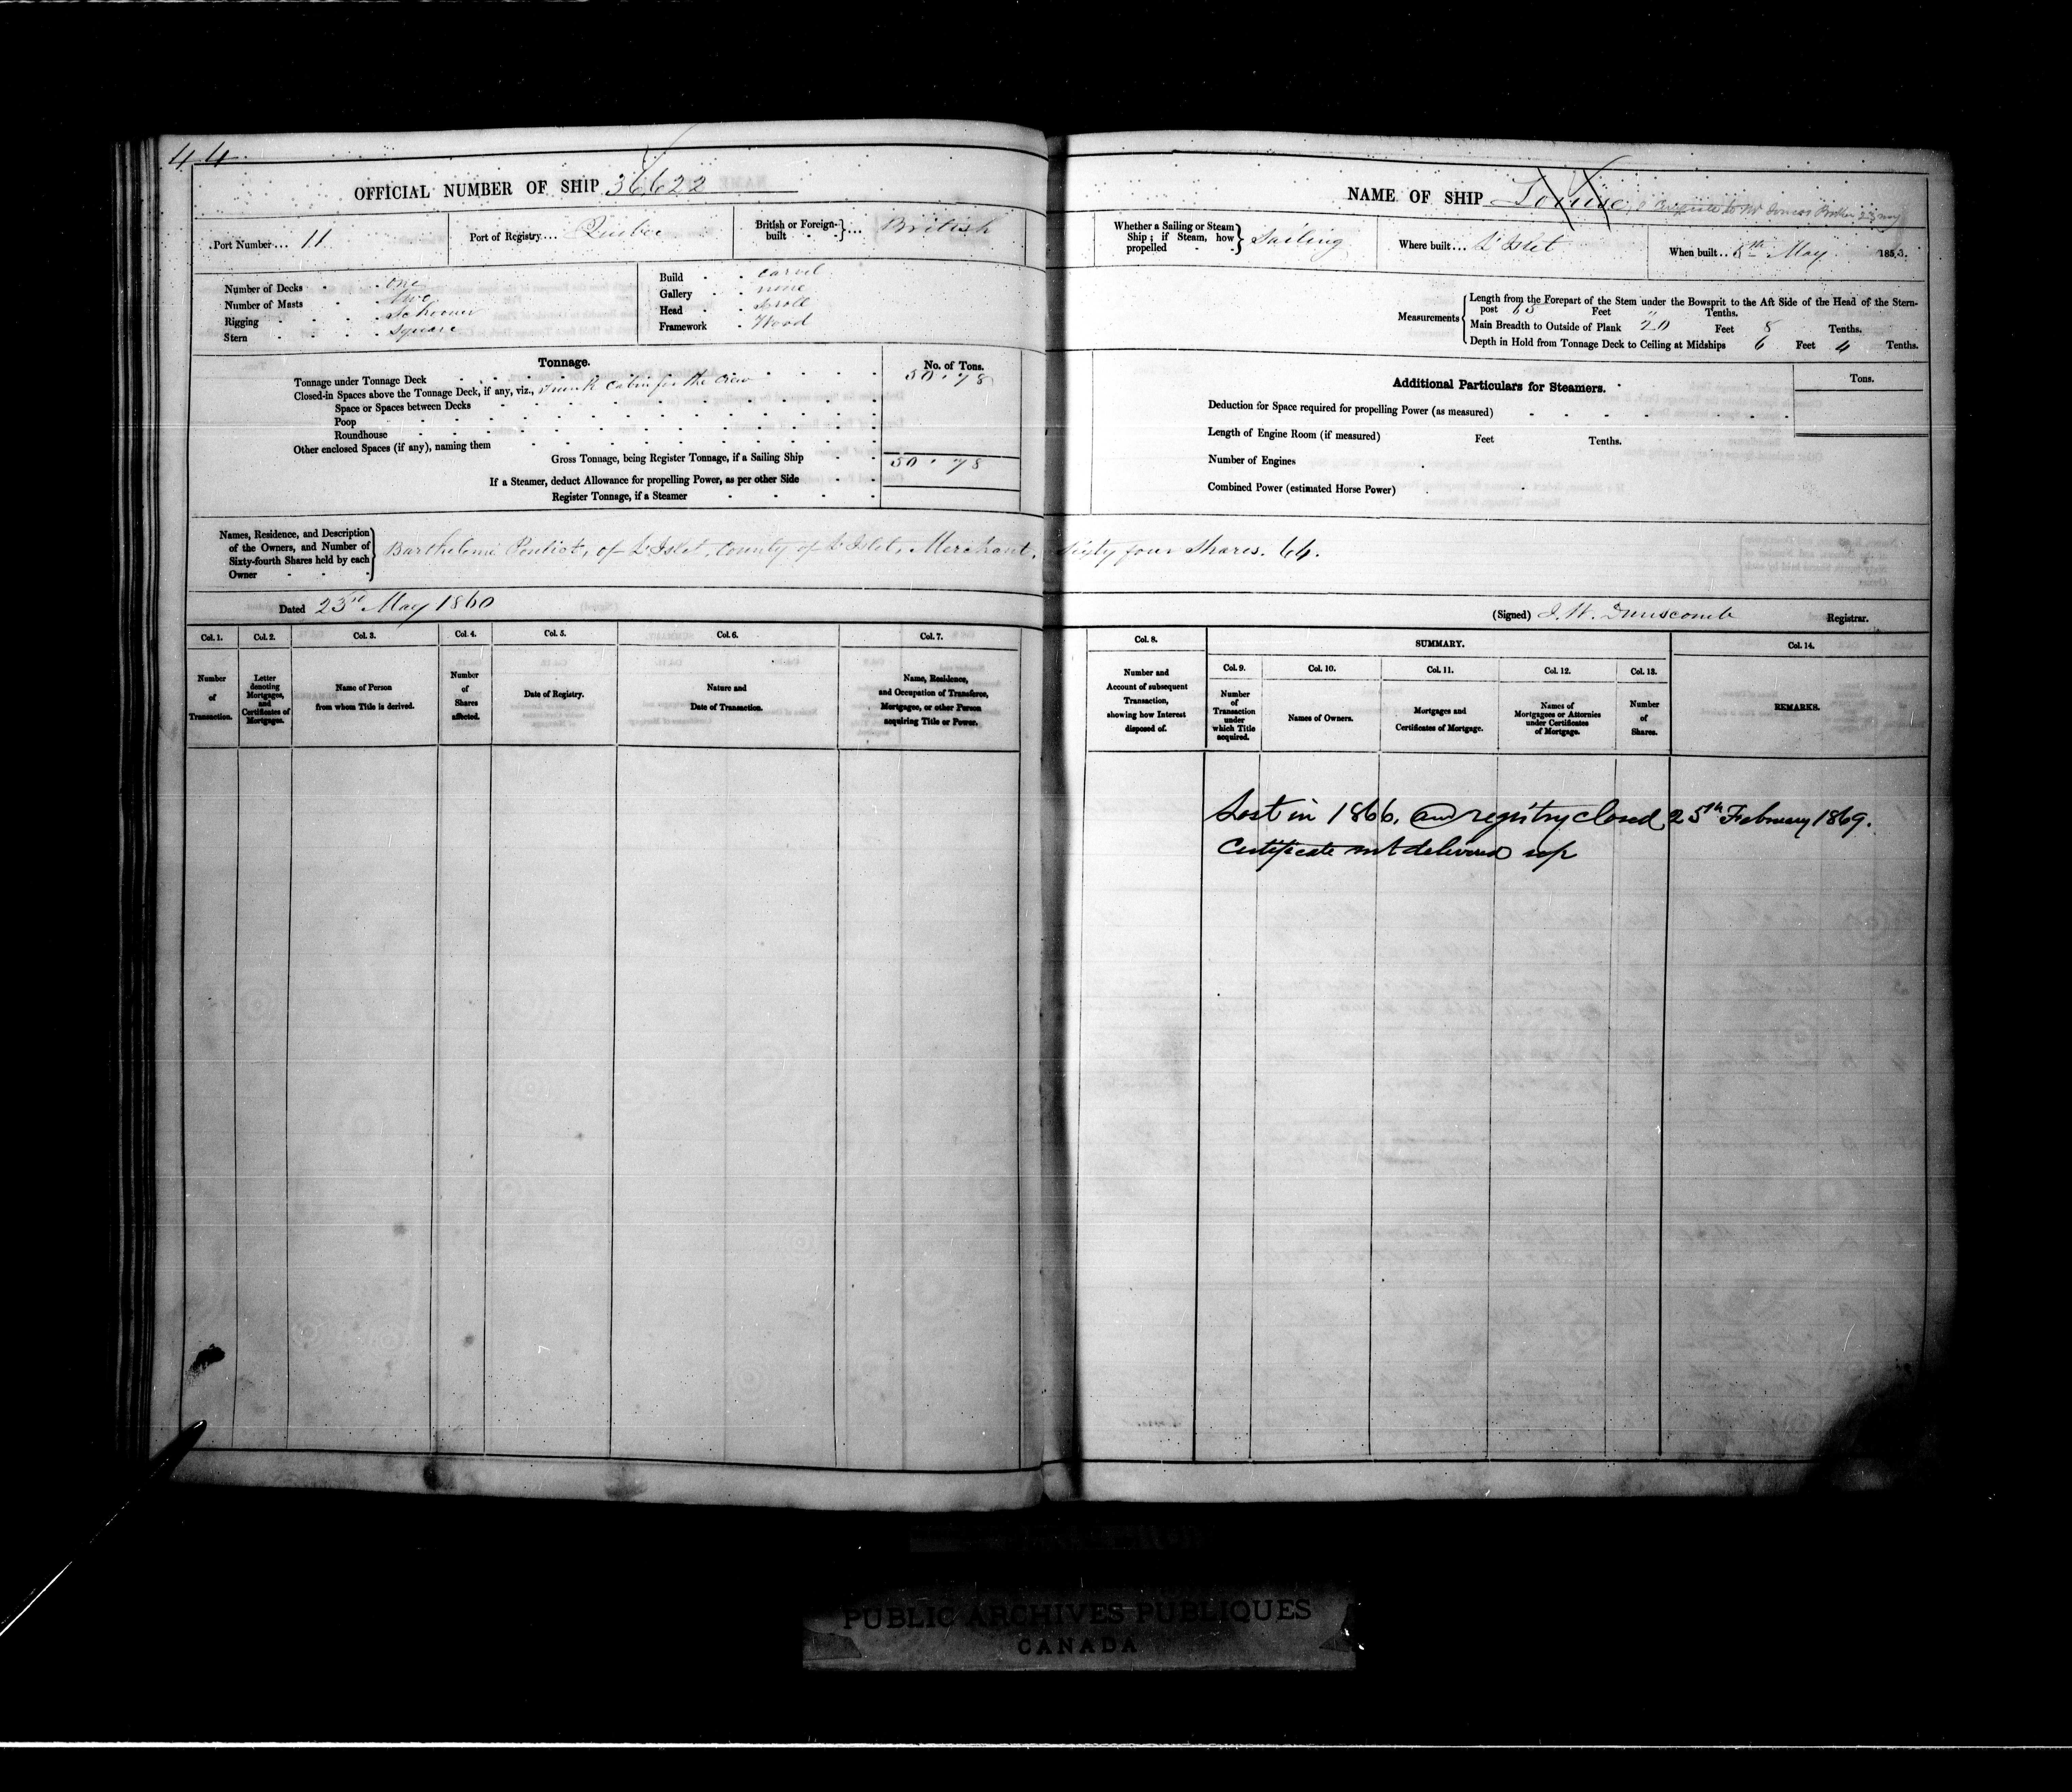 44
OFFICIAL NUMBER OF SHIP 36,622
Port Number... 11 Port of Registry.... Quebec British or Foreign-built } ... British
Number of Decks . . one
Number of Masts . . two
Rigging . . . . Schooner
Stern . . . . square
Build . . carvel
Gallery . . none
Head . . scroll
Framework . Wood
Tonnage. No. of Tons.
Tonnage under Tonnage Deck 50.78
Closed-in Spaces above the Tonnage Deck, if any, viz., Trunk Cabin for the Crew
Space or Spaces between Decks
Poop
Roundhouse
Other enclosed Spaces (if any), naming them
Gross Tonnage, being Register Tonnage, if a Sailing Ship 50.78
If a Steamer, deduct Allowance for propelling Power, as per other Side
Register Tonnage, if a Steamer
Names, Residence, and Description of the Owners, and Number of Sixty-fourth Shares held by each Owner } Barthelemi Pouliot, of L'Islet, County of L'Islet, Merchant, sixty four shares. 64.
Dated 23rd May 1860
Col. 1. Col. 2. Col. 3. Col. 4. Col. 5. Col. 6. Col. 7.
Number of Transaction.
Letter denoting Mortgages, and Certificates of Mortgages.
Name of Person from whom Title is derived.
Number of Shares affected.
Date of Registry.
Nature and Date of Transaction.
Name, Residence, and Occupation of Transferee, Mortgagee, or other Person acquiring Title or Power.
NAME OF SHIP Louise,
Whether a Sailing or Steam Ship ; if Steam, how propelled } Sailing Where built... L'Islet When built.. 8th May 1853.
Measurements { Length from the Forepart of the Stem under the Bowsprit to the Aft Side of the Head of the Stern-
post 65 Feet " Tenths.
Main Breadth to Outside of Plank 20 Feet 8 Tenths.
Depth in Hold from Tonnage Deck to Ceiling at Midships 6 Feet 4 Tenths.
Additional Particulars for Steamers. Tons.
Deduction for Space required for propelling Power (as measured)
Length of Engine Room (if measured) Feet Tenths.
Number of Engines
Combined Power (estimated Horse Power)
(Signed) J. W. Dunscomb Registrar.
Col. 8. SUMMARY. Col. 14.
Col. 9. Col. 10. Col. 11. Col. 12. Col. 13.
Number and Account of subsequent Transaction, showing how Interest disposed of.
Number of Transaction under which Title acquired.
Names of Owners.
Mortgages and Certificates of Mortgage.
Names of Mortgagees or Attornies under Certificates of Mortgage.
Number of Shares.
REMARKS.
Lost in 1866, and registry closed 25th February 1869.
Certificate not delivered up
PUBLIC ARCHIVES PUBLIQUES
CANADA